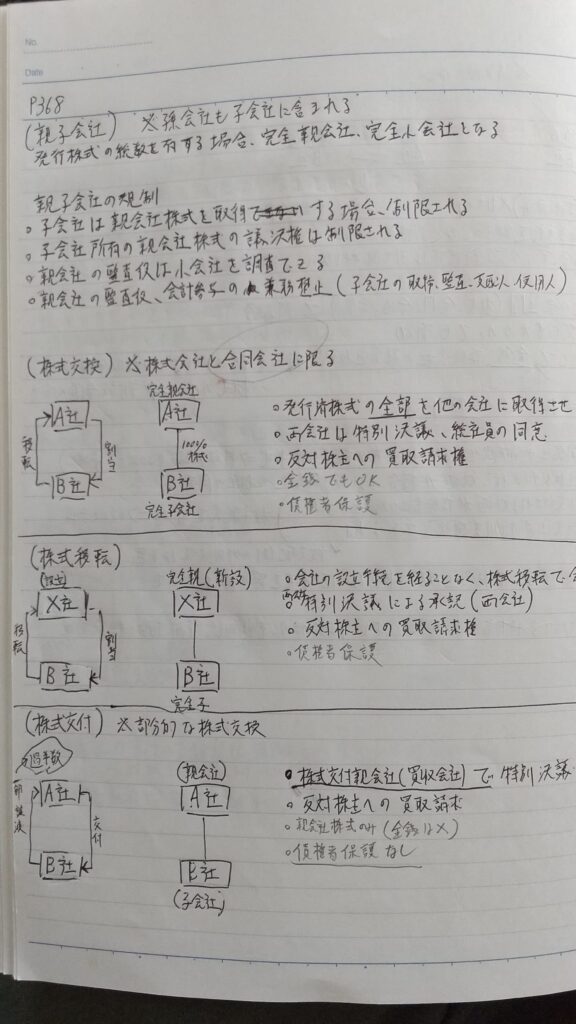 No.
Date
P368
(親子会社) ※孫会社も子会社に含まれる
発行株式の総数を有する場合、完全親会社、完全小会社となる
親子会社の規制
○子会社は親会社株式を取得する場合、制限される
○子会社所有の親会社株式の議決権は制限される
○親会社の監査役は小会社を調査できる
○親会社の監査役、会計参与の兼務禁止(子会社の取締、監査、支配人、使用人)
(株式交換) ※株式会社と合同会社に限る
A社
B社
移転
割当
完全親会社
A社
100%
株式
B社
完全子会社
○発行済株式の全部を他の会社に取得させ
○両会社は特別決議、総社員の同意
○反対株主への買取請求権
○金銭でもOK
○債権者保護
(株式移転)
(設立)
X社
B社
移転
割当
完全親(新設)
X社
B社
完全子
○会社の設立手続を経ることなく、株式移転で
特別決議による承認(両会社)
○反対株主への買取請求権
○債権者保護
(株式交付) ※部分的な株式交換
過半数
A社
B社
交付
(親会社)
A社
B社
(子会社)
○株式交付親会社(買収会社)で特別決議
○反対株主への買取請求
○親会社株式のみ(金銭は×)
○債権者保護なし